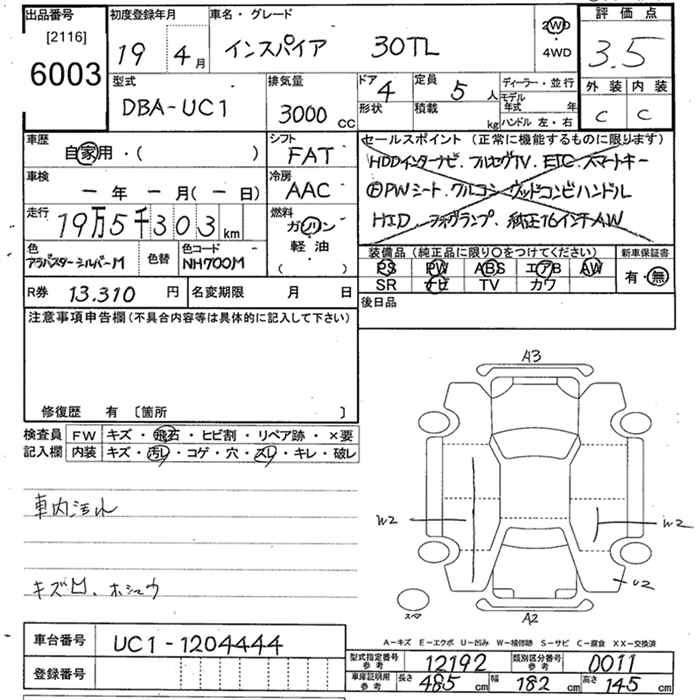 出品番号 初度登録年月 車名・グレード 評価点
[2116]
6003 19 4月 インスパイア 30TL 2WD・4WD 3.5
型式 排気量 ドア 定員 ディーラー・並行 外装 内装
DBA-UC1 3000cc 4 5人 モデル年式 年 C C
形状 積載 kg ハンドル 左・右
車歴 自家用・( ) シフト FAT セールスポイント (正常に機能するものに限ります)
車検 ー年ー月(ー日) 冷房 AAC HDDインターナビ フルセグTV ETC スマートキー
PWシート クルコン ウッドコンビハンドル
走行 19万5千303km 燃料 ガソリン・軽油 ( ) HID フォグランプ 純正16インチAW
色 アラバスターシルバーM 色替 色コード NH700M 装備品 (純正品に限り○をつけてください) 新車保証書
PS PW ABS エアB AW 有・無
R券 13.310円 名変期限 月 日 SR ナビ TV カワ
注意事項申告欄(不具合内容等は具体的に記入して下さい) 後日品
修復歴 有 〔箇所 〕
A3
検査員 FW キズ・飛石・ヒビ割・リペア跡・×要
記入欄 内装 キズ・汚レ・コゲ・穴・スレ・キレ・破レ
車内汚れ
W2 W2
キズ凹、ホショウ
U2
スペア
A2
A-キズ E-エクボ U-凹み W-補修跡 S-サビ C-腐食 XX-交換済
車台番号 UC1-1204444
型式指定番号 参考 12192 類別区分番号 参考 0011
登録番号
車庫証明用 参考 長さ 485cm 幅 182cm 高さ 145cm